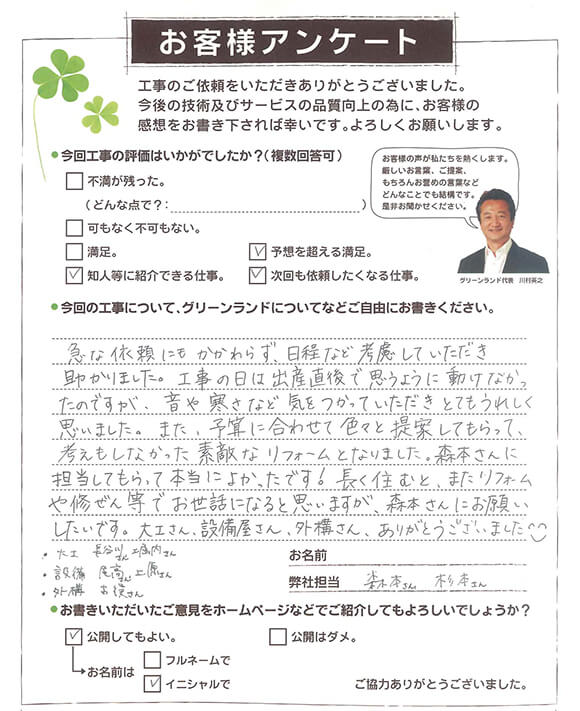 お客様アンケート
工事のご依頼をいただきありがとうございました。
今後の技術及びサービスの品質向上の為に、お客様の
感想をお書き下されば幸いです。よろしくお願いします。
●今回工事の評価はいかがでしたか?(複数回答可)
お客様の声が私たちを熱くします。
厳しいお言葉、ご提案、
もちろんお誉めの言葉など
どんなことでも結構です。
是非お聞かせください。
グリーンランド代表 川村英之
□ 不満が残った。
(どんな点で?: )
□ 可もなく不可もない。
□ 満足。 ☑ 予想を超える満足。
☑ 知人等に紹介できる仕事。 ☑ 次回も依頼したくなる仕事。
●今回の工事について、グリーンランドについてなどご自由にお書きください。
急な依頼にもかかわらず、日程など考慮していただき
助かりました。工事の日は出産直後で思うように動けなかっ
たのですが、音や寒さなど気をつかっていただきとてもうれしく
思いました。また、予算に合わせて色々と提案してもらって、
考えもしなかった素敵なリフォームとなりました。森本さんに
担当してもらって本当によかったです!長く住むと、またリフォーム
や修ぜん等でお世話になると思いますが、森本さんにお願い
したいです。大工さん、設備屋さん、外構さん、ありがとうございました
・大工 長谷川さん
・設備 尾高さん 上原さん
・外構
お名前
弊社担当 森本さん 杉本さん
●お書きいただいたご意見をホームページなどでご紹介してもよろしいでしょうか?
☑ 公開してもよい。 □ 公開はダメ。
→お名前は □ フルネームで
☑ イニシャルで
ご協力ありがとうございました。